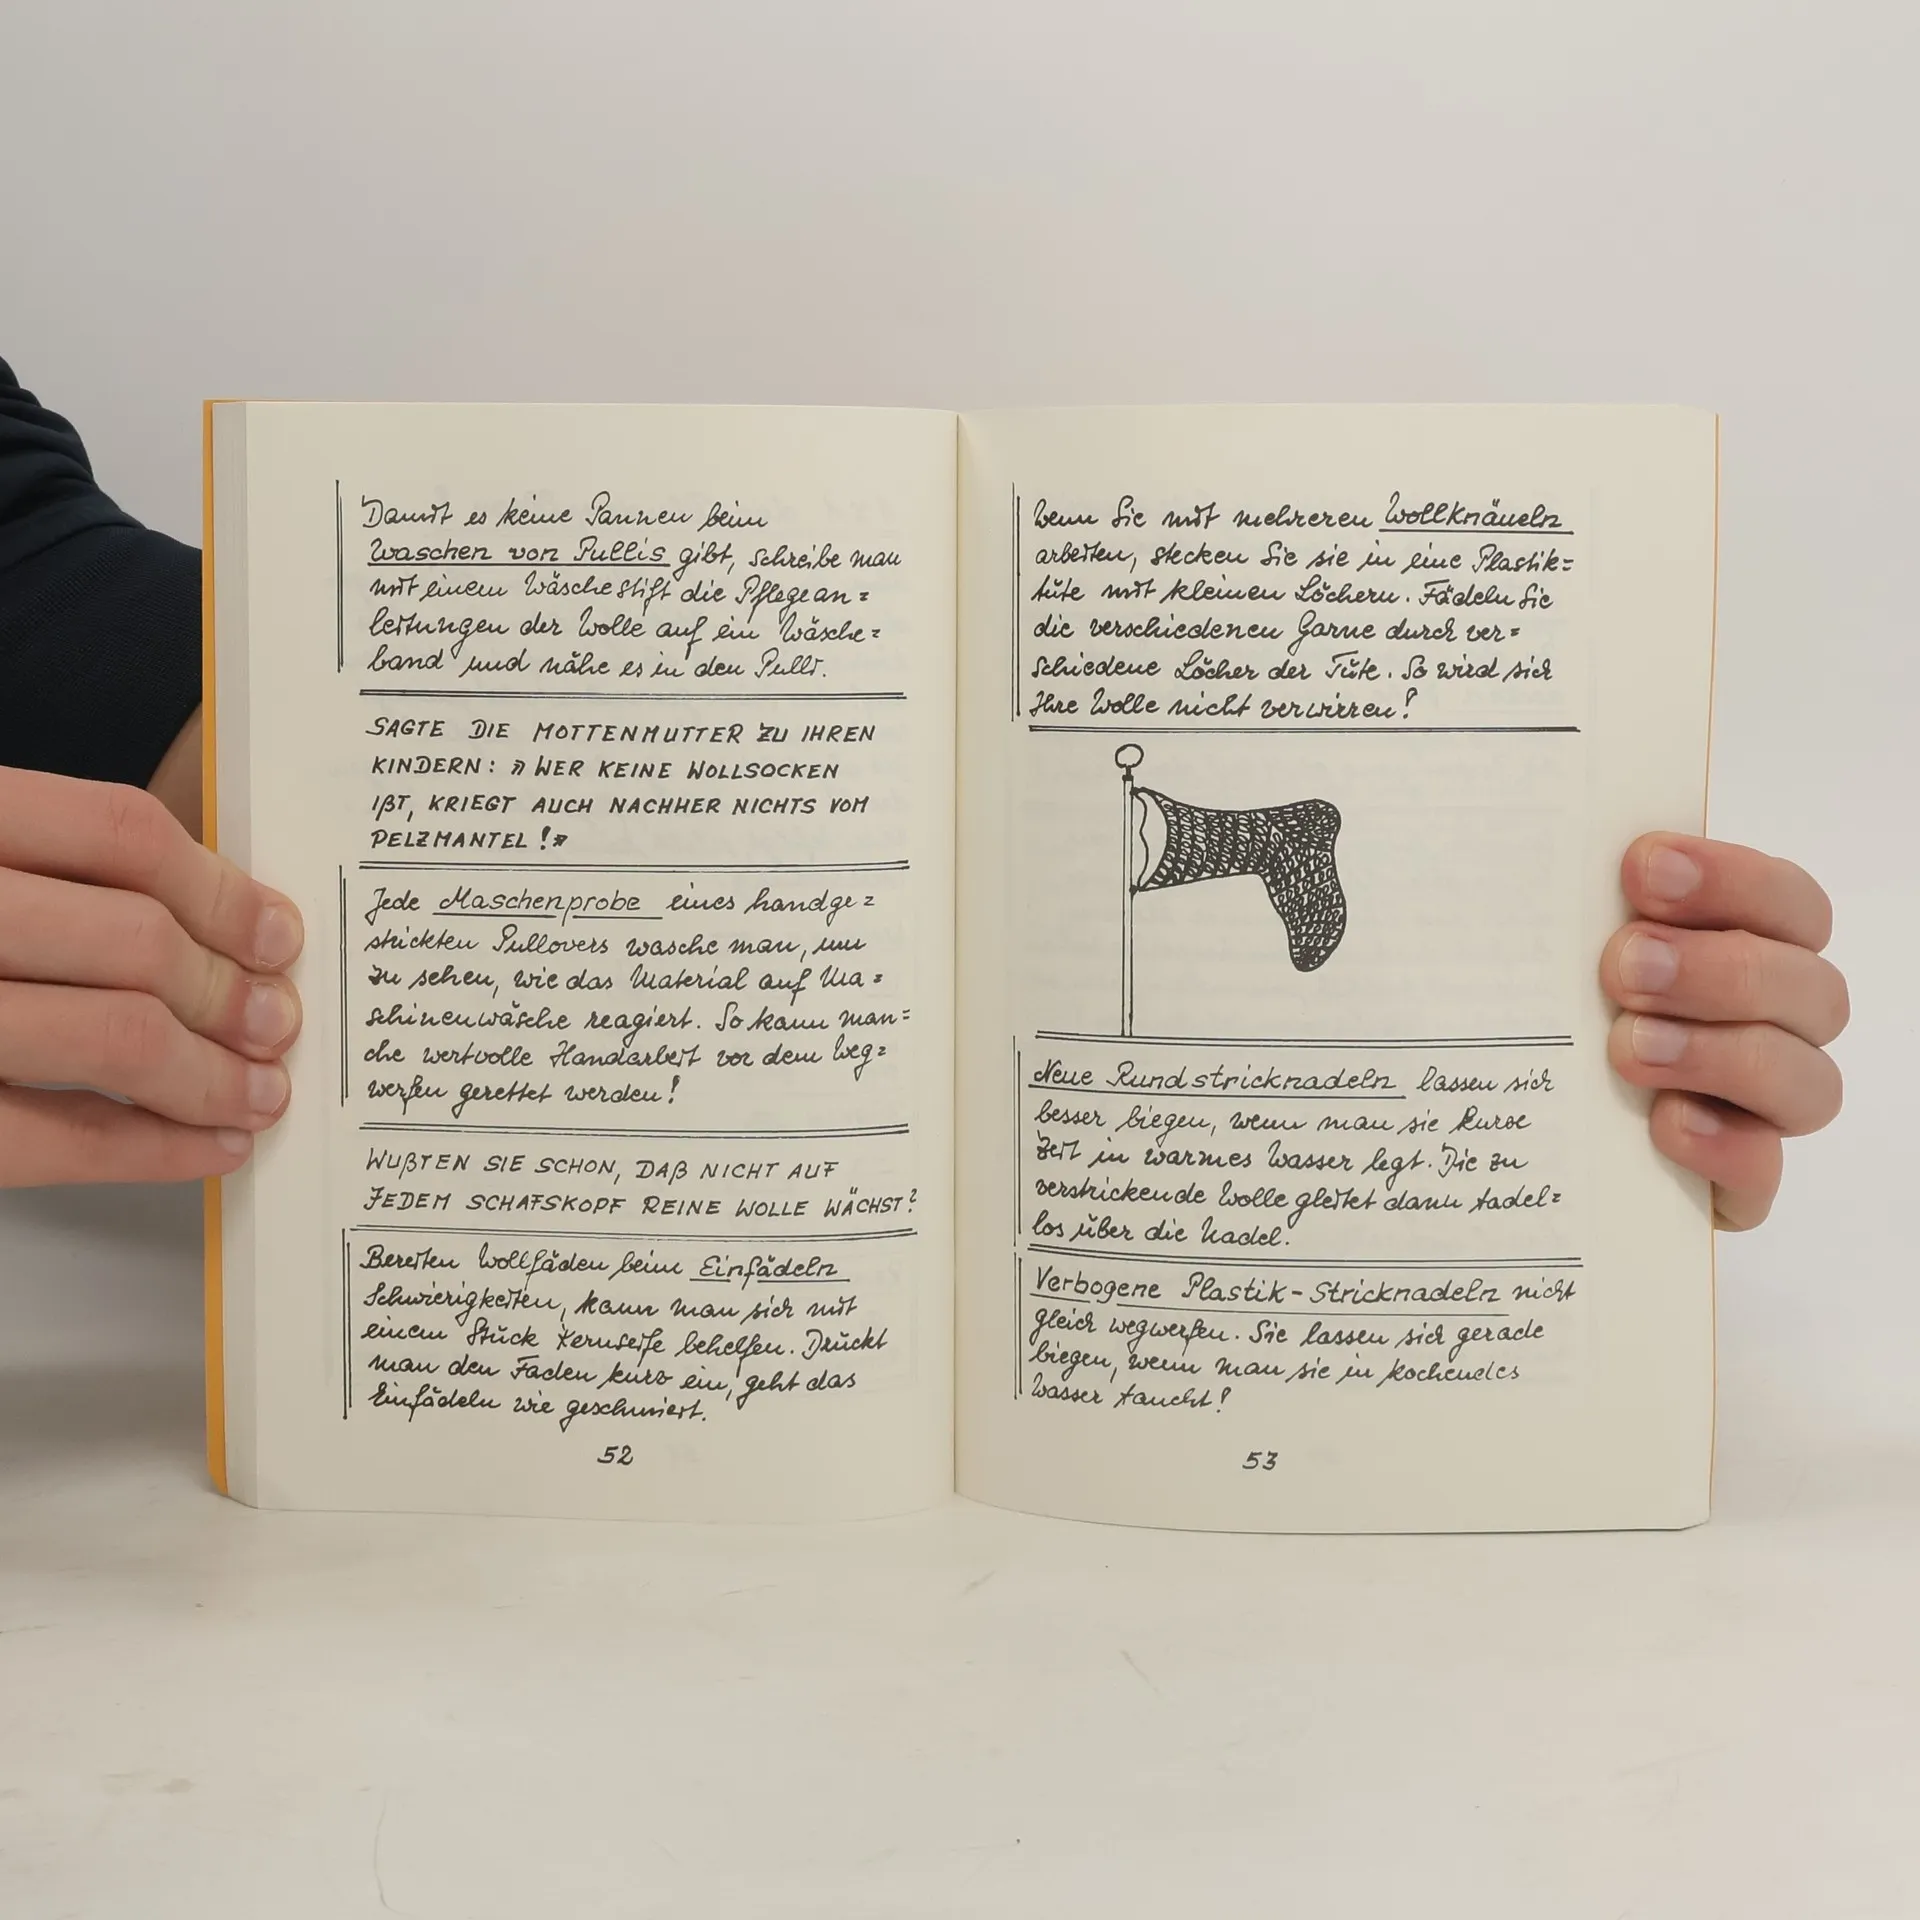 Damit es keine Pannen beim
Waschen von Pullis gibt, schreibe man
mit einem Wäschestift die Pflegean=
leitungen der Wolle auf ein Wäsche=
band und nähe es in den Pulli.
SAGTE DIE MOTTENMUTTER ZU IHREN
KINDERN: » WER KEINE WOLLSOCKEN
IßT, KRIEGT AUCH NACHHER NICHTS VOM
PELZMANTEL!»
Jede Maschenprobe eines handge=
strickten Pullovers wasche man, um
zu sehen, wie das Material auf Ma=
schinenwäsche reagiert. So kann man=
che wertvolle Handarbeit vor dem Weg=
werfen gerettet werden!
WUßTEN SIE SCHON, DAß NICHT AUF
JEDEM SCHAFSKOPF REINE WOLLE WÄCHST?
Bereiten Wollfäden beim Einfädeln
Schwierigkeiten, kann man sich mit
einem Stück Kernseife behelfen. Drückt
man den Faden kurz ein, geht das
Einfädeln wie geschmiert.
52
Wenn Sie mit mehreren Wollknäueln
arbeiten, stecken Sie sie in eine Plastik=
tüte mit kleinen Löchern. Fädeln Sie
die verschiedenen Garne durch ver=
schiedene Löcher der Tüte. So wird sich
Ihre Wolle nicht verwirren!
Neue Rundstricknadeln lassen sich
besser biegen, wenn man sie kurze
Zeit in warmes Wasser legt. Die zu
verstrickende Wolle gleitet dann tadel=
los über die Nadel.
Verbogene Plastik-Stricknadeln nicht
gleich wegwerfen. Sie lassen sich gerade
biegen, wenn man sie in kochendes
Wasser taucht!
53